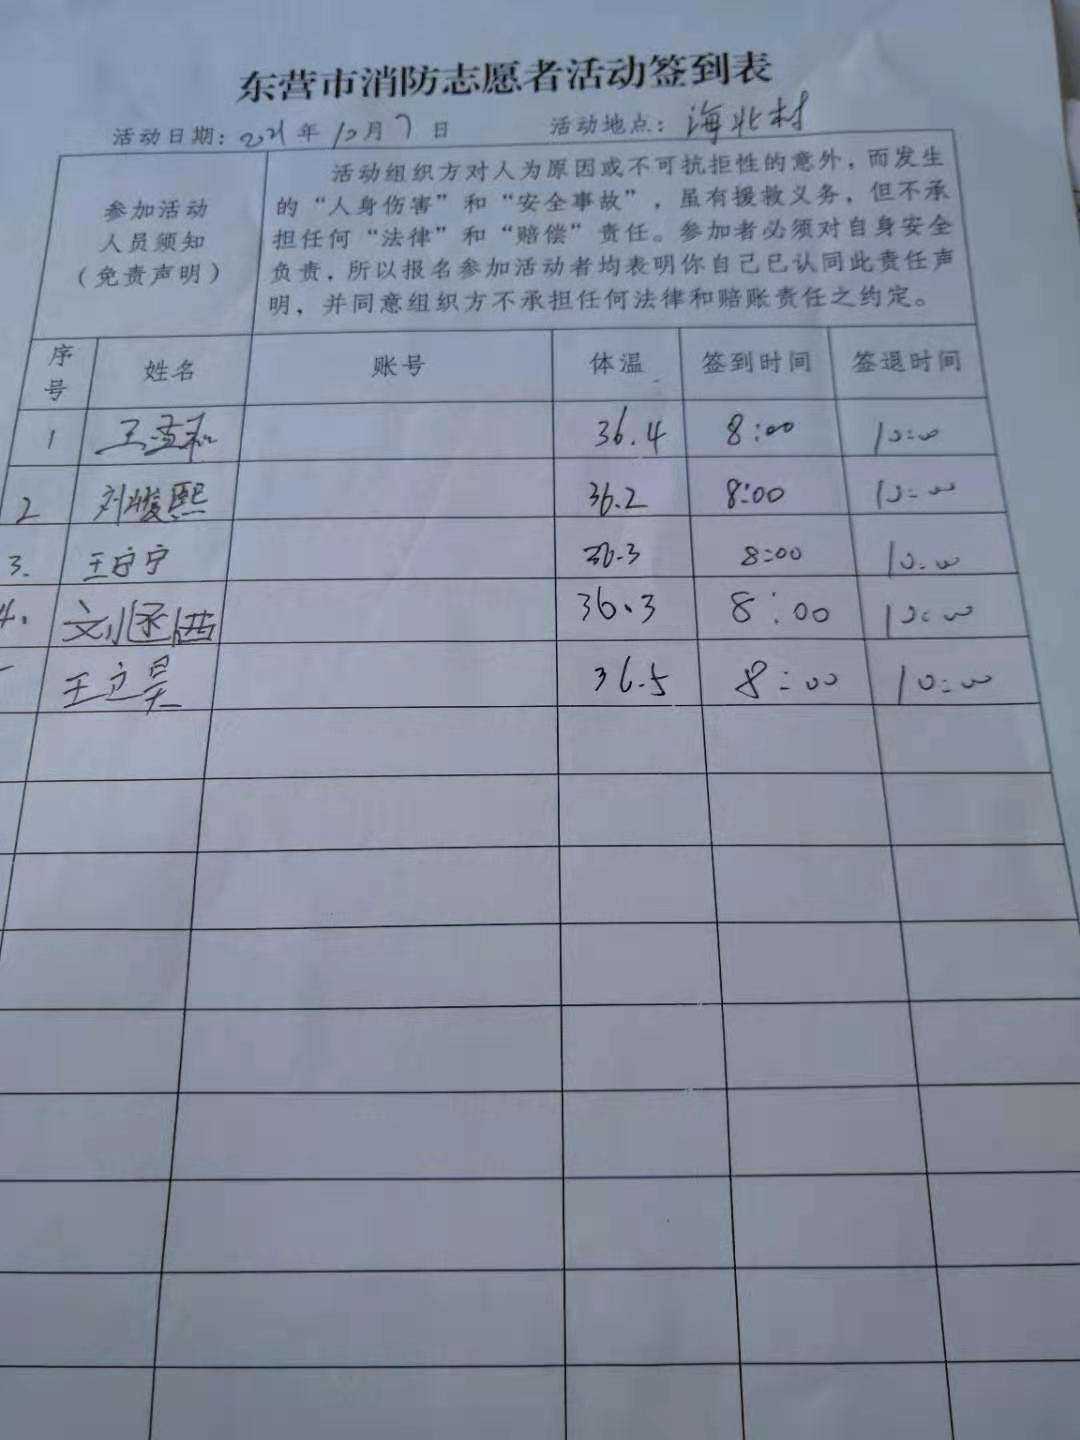 东营市消防志愿者活动签到表
活动日期：2021年12月7日 活动地点：海北村
参加活动
人员须知
（免责声明）
活动组织方对人为原因或不可抗拒性的意外，而发生
的“人身伤害”和“安全事故”，虽有援救义务，但不承
担任何“法律”和“赔偿”责任。参加者必须对自身安全
负责，所以报名参加活动者均表明你自己已认同此责任声
明，并同意组织方不承担任何法律和赔账责任之约定。
序号 姓名 账号 体温 签到时间 签退时间
1 王孟和 36.4 8:00 10:00
2 刘峻熙 36.2 8:00 10:00
3. 王宁宁 36.3 8:00 10:00
4. 刘丞茜 36.3 8:00 10:00
王立昊 36.5 8:00 10:00